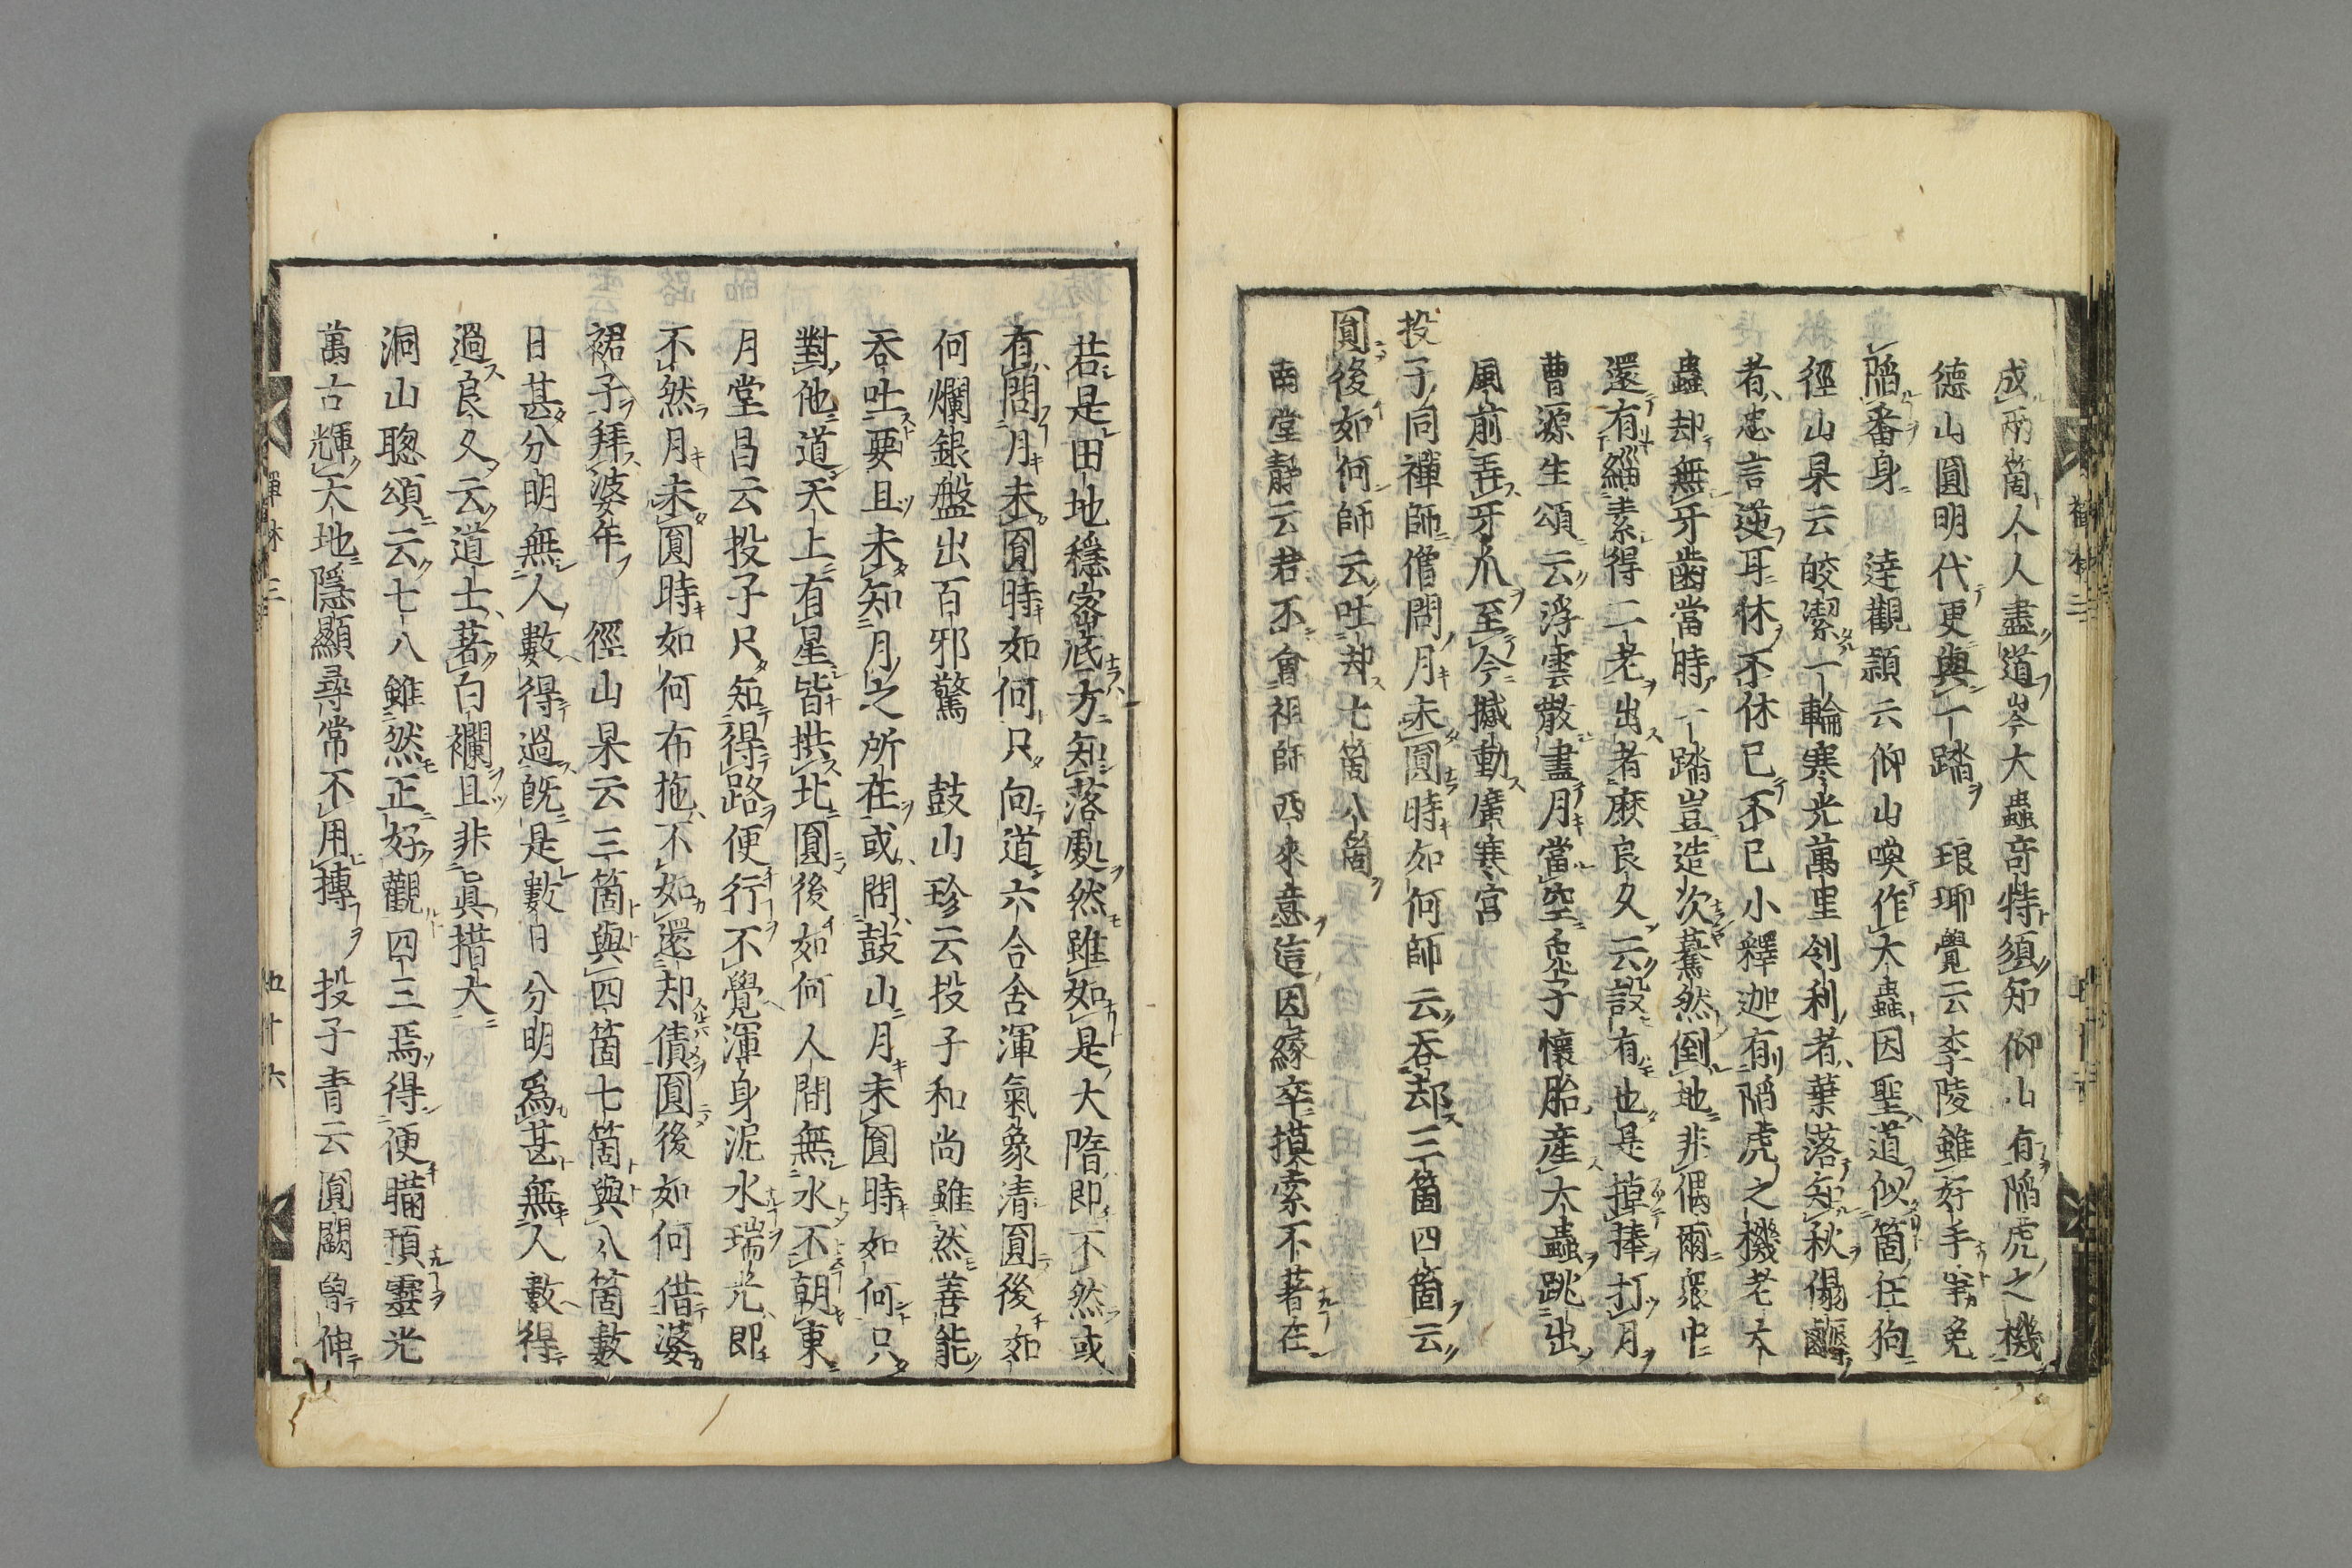 成兩箇人人盡道岑大蟲竒特須知仰山有䧟虎之機
德山圓明代更與一踏　琅琊覺云李陵雖好手爭免
䧟番身　逹觀頴云仰山喚作大蟲因聖道似箇任狗
徑山杲云皎潔一輪寒光萬里刢利者葉落知秋傝𠎷
者忠言逆耳休不休已不已小釋迦有䧟虎之機老大
蟲却無牙齒當時一踏豈造次驀然倒地非偶爾衆中
還有緇素得二老出者麽良久云設有也是掉捧打月
曹源生頌云浮雲散盡月當空兎子懷胎産大蟲跳出
風前弄牙爪至今撼動廣寒宮
投子同禪師僧問月未圓時如何師云吞却三箇四箇云
圓後如何師云吐却七箇八箇
南堂靜云若不會祖師西來意這因緣卒摸索不著在
若是田地穩密底方知落處然雖如是大隋即不然或
有問月未圓時如何只向道六合含渾氣象清圓後如
何爛銀盤出百邪驚　鼓山珍云投子和尚雖然善能
吞吐要且未知月之所在或問鼓山月未圓時如何只
對他道天上有星皆拱北圓後如何人間無水不朝東
月堂昌云投子只知得路便行不覺渾身泥水瑞光即
不然月未圓時如何布拖不如還却債圓後如何借婆
裙子拜婆年　徑山杲云三箇與四箇七箇與八箇數
日甚分明無人數得過旣是數日分明爲甚無人數得
過良久云道士著白襴且非眞措大
洞山聰頌云七八雖然正好觀四三焉得便瞞頇靈光
萬古輝大地隱顯尋常不用摶　投子青云圓闕曽伸